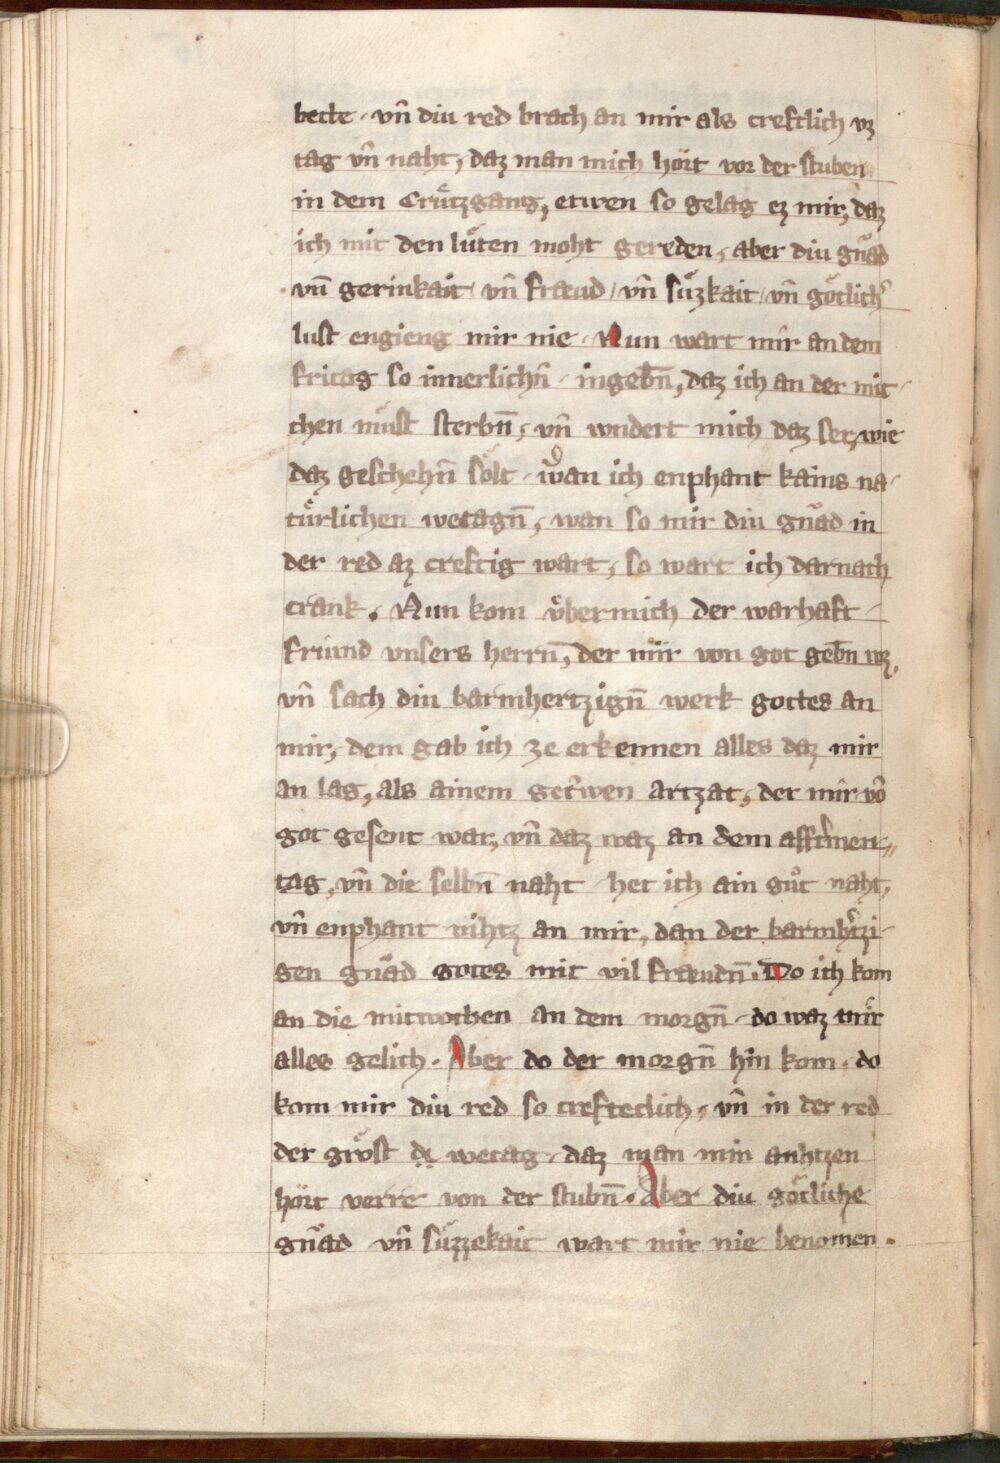 bette · vn̄ diu red brach an mir als creftlich vꝫ
tag vn̄ naht, daz man mich hört vor der stuben
in dem Crützgang, etwen so gelag ez mir, daz
ich mit den lüten moht gereden, aber diu gnad
vn̄ geringkait vn̄ fraud / vn̄ süzkait / vn̄ götlich᾽
lust engieng mir nie · Nun wart mir an dem
fritag so innerlichn̄ ingebn̄, daz ich an der mit
chen muͤst sterbn̄, vn̄ wndert mich daz ser, wie
daz geschehn̄ sölt · wan ich enphant kains na-
türlichen wetagn̄, wan so mir diu gnad in
der red az creftig wart, so wart ich darnach
crank. Nun kom vͤber mich der warhaft
friund vnsers herrn̄, der mir von got gebn̄ wz,
vn̄ sach diu barmhertzign̄ werk gottes an
mir, dem gab ich ze erkennen alles daz mir
an lag, als ainem getrwen artzat, der mir vō
got gesent war, vn̄ daz waz an dem afftmen-
tag, vn̄ die selbn̄ naht het ich ain guͦt naht,
vn̄ enphant nihtz an mir, dan der barmh᾽tzi-
gen gnad gotes mit vil fraudn̄. Do ich kom
an die mitwochen an dem morgn̄ · do waz mir
alles gelich · Aber do der morgn̄ hin kom · do
kom mir diu red so crefteclich, vn̄ in der red
der gröst wetag · daz man min anhtzen
hört verre von der stubn̄ · Aber diu götliche
gnad vn̄ süzzekait wart mir nie benomen .